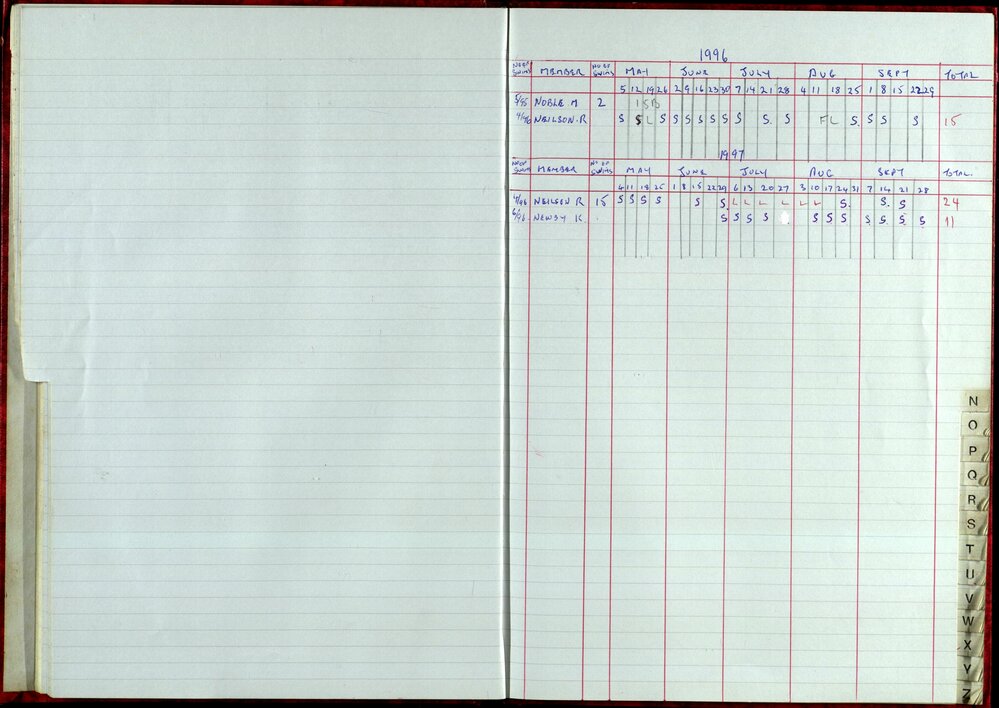 1996
NO OF SWIMS MEMBER NO OF SWIMS MAY JUNE JULY AUG SEPT TOTAL
5 12 19 26 2 9 16 23 30 7 14 21 28 4 11 18 25 1 8 15 22 29
5/95 NOBLE M 2 1SB
4/96 NEILSON.R S S L S S S S S S S S. S F L S. S S S 15
1997
NO OF SWIMS MEMBER NO OF SWIMS MAY JUNE JULY AUG SEPT TOTAL.
4 11 18 25 1 8 15 22 29 6 13 20 27 3 10 17 24 31 7 14 21 28
4/96 NEILSON R 15 S S S S S S. L L L L L L S. S. S 24
6/96 NEWBY K. S S S S S S S S S. S S 11
N
O
P
Q
R
S
T
U
V
W
X
Y
Z